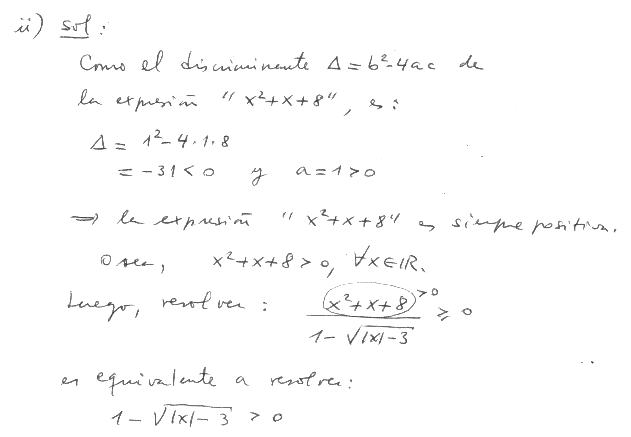 ii) sol:
Como el discriminante Δ = b²-4ac de
la expresión "x²+x+8", es:
Δ = 1²-4.1.8
= -31 < 0 y a=1>0
⇒ la expresión "x²+x+8" es siempre positiva.
O sea, x²+x+8 > 0, ∀x∈ℝ.
Luego, resolver: (x²+x+8)>0 / 1-√|x|-3 ≥ 0
es equivalente a resolver:
1-√|x|-3 > 0